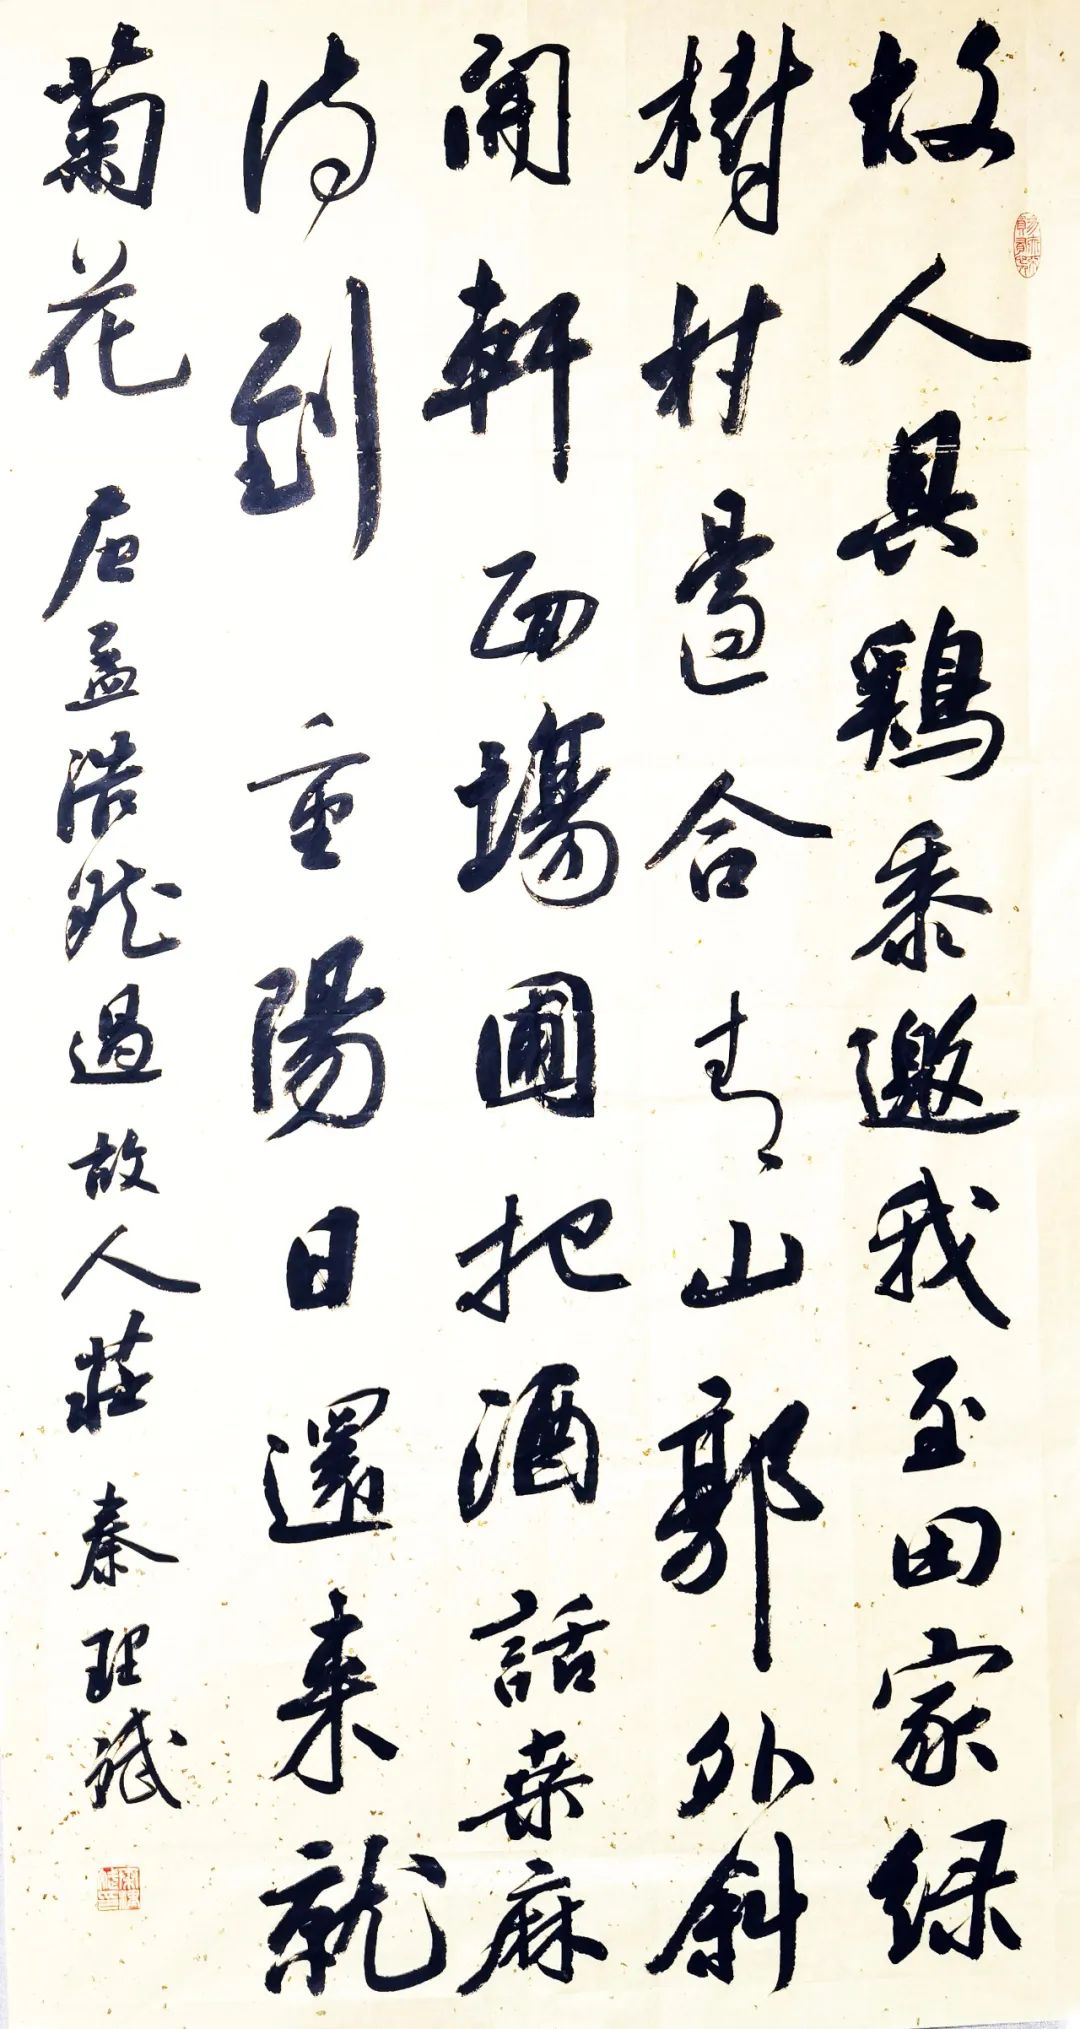 故人具鷄黍邀我至田家緑
樹村邊合青山郭外斜
開軒面場圃把酒話桑麻
待到重陽日還来就
菊花 唐孟浩然過故人莊 秦理斌